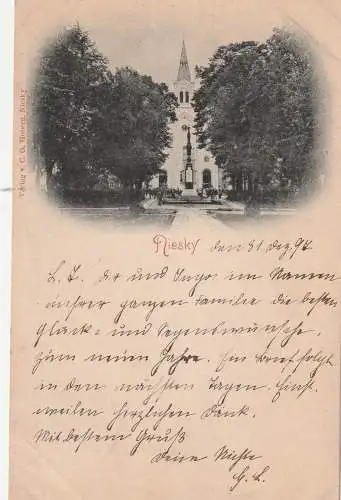 Verlag v. C. G. Hiesers, Niesky
Niesky den 31. Dez. 97
L. T. Dir und Ingo im Namen
unserer ganzen Familie die besten
Glück- und Segenswünsche,
zum neuen Jahre. Ein Brief folgt
in den nächsten Tagen. Einst-
weilen herzlichen Dank.
Mit bestem Gruß
Deine Nichte
G. L.